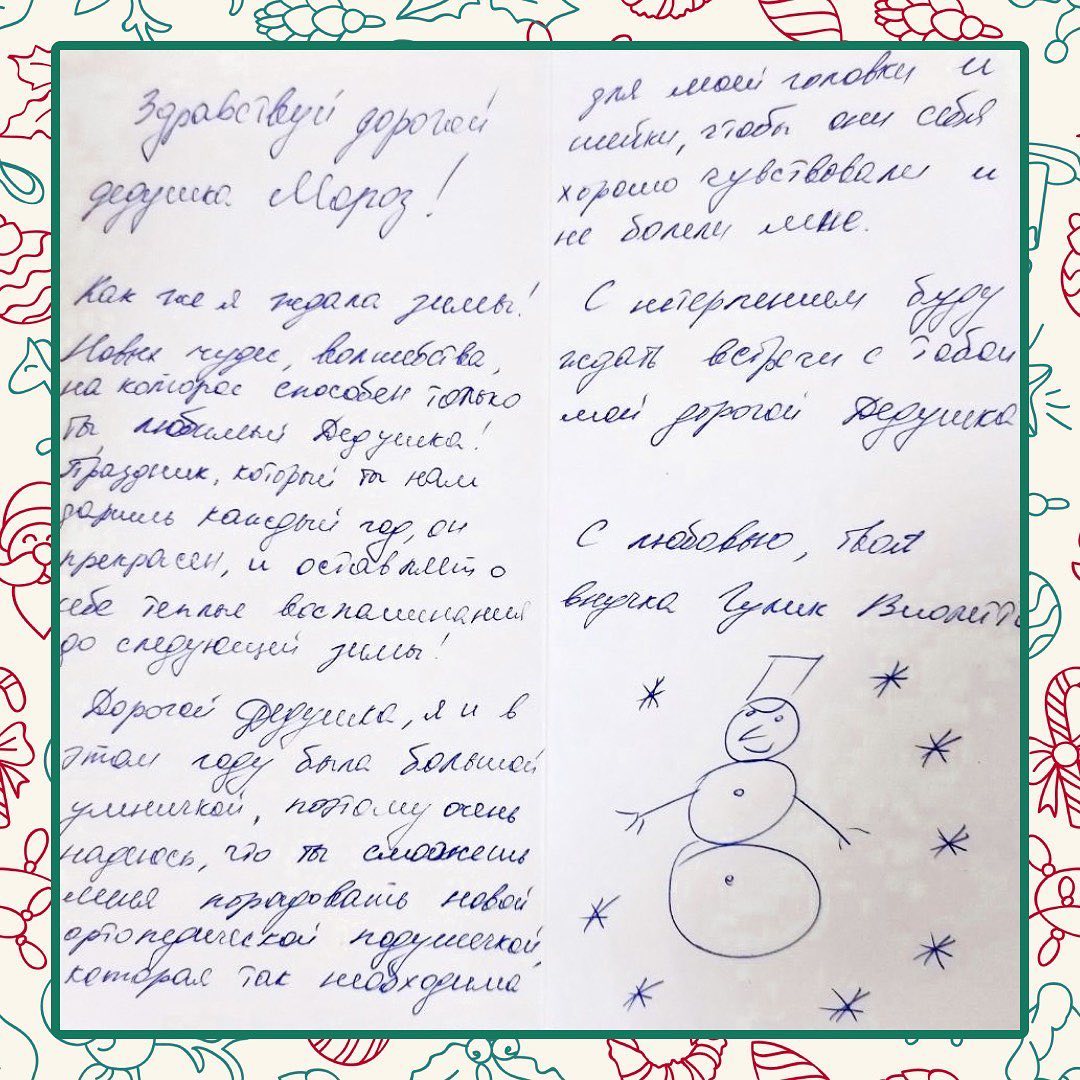 Здравствуй дорогой
дедушка Мороз!
Как же я ждала зимы!
Новых чудес, волшебства,
на которое способен только
ты любимый Дедушка!
Праздник, который ты нам
даришь каждый год, он
прекрасен, и оставляет о
себе теплые воспоминания
до следующей зимы!
Дорогой Дедушка, я и в
этом году была большой
умничкой, поэтому очень
надеюсь, что ты сможешь
меня порадовать новой
ортопедической подушечкой,
которая так необходима
для моей головки и
шейки, чтобы они себя
хорошо чувствовали и
не болели мне.
С нетерпением буду
ждать встречи с тобой
мой дорогой Дедушка
С любовью, твоя
внучка Гулик Виолетта